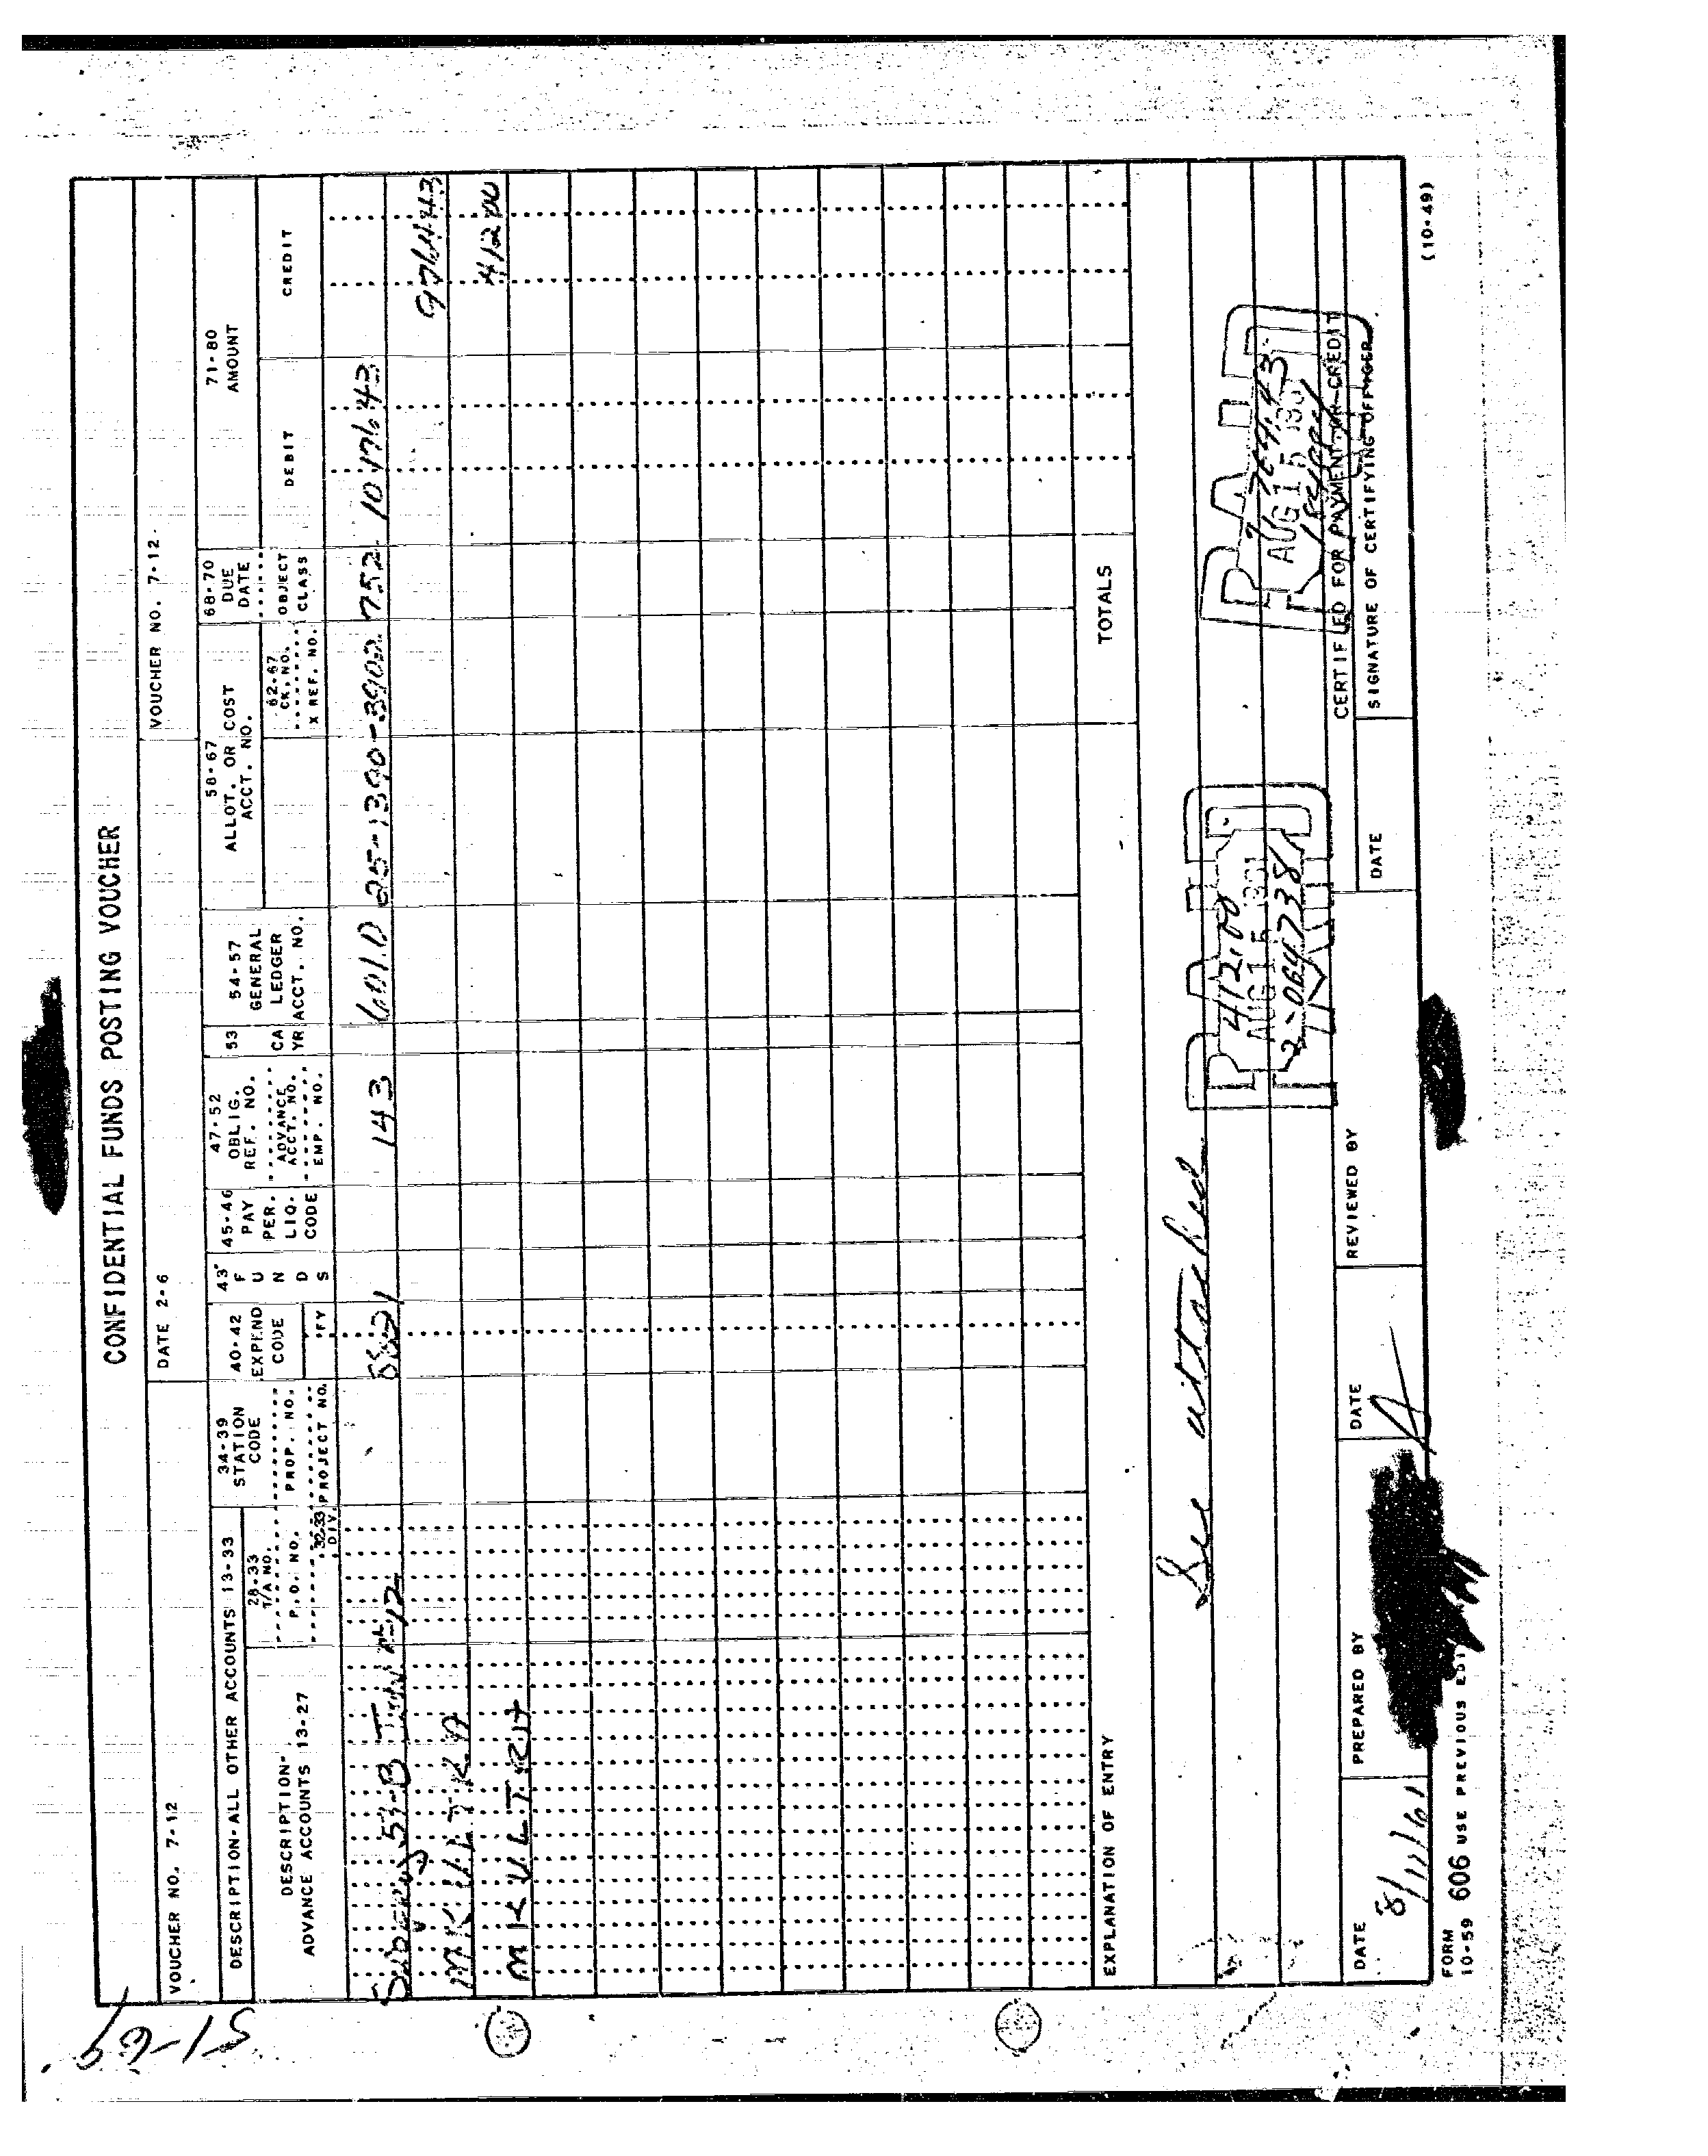 51-69
CONFIDENTIAL FUNDS POSTING VOUCHER
VOUCHER NO. 7-12 DATE 2-6 VOUCHER NO. 7-12
DESCRIPTION-ALL OTHER ACCOUNTS 13-33
DESCRIPTION-
ADVANCE ACCOUNTS 13-27
28-33
T/A NO.
P.O. NO.
32-33
DIV.
34-39
STATION
CODE
PROP. NO.
PROJECT NO.
40-42
EXPEND
CODE
FY
43
F
U
N
D
S
45-46
PAY
PER.
LIQ.
CODE
47-52
OBLIG.
REF. NO.
ADVANCE
ACCT. NO.
EMP. NO.
53
CA
YR
54-57
GENERAL
LEDGER
ACCT. NO.
58-67
ALLOT. OR COST
ACCT. NO.
62-67
CK. NO.
X REF. NO.
68-70
DUE
DATE
OBJECT
CLASS
71-80
AMOUNT
DEBIT CREDIT
143 601.0 25-1390-3902 752 10 176 43
9764 43
MKULTRA 412 00
EXPLANATION OF ENTRY TOTALS
See attached
PAID
412.00
AUG 15
2-064738
PAID
9764.43
AUG 15
CERTIFIED FOR PAYMENT OR CREDIT
DATE PREPARED BY DATE REVIEWED BY DATE SIGNATURE OF CERTIFYING OFFICER
8/11/61
FORM
10-59 606 USE PREVIOUS (10-49)